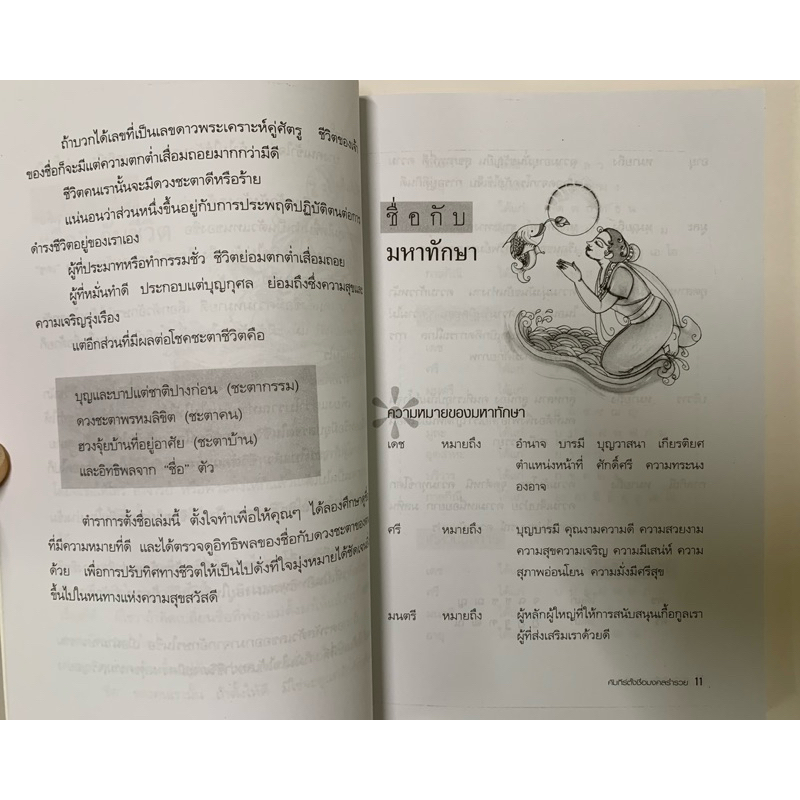 ถ้าบวกได้เลขที่เป็นเลขดาวพระเคราะห์คู่ศัตรู ชีวิตของเจ้า
ของชื่อก็จะมีแต่ความตกต่ำเสื่อมถอยมากกว่ามีดี
ชีวิตคนเรานั้นจะมีดวงชะตาดีหรือร้าย
แน่นอนว่าส่วนหนึ่งขึ้นอยู่กับการประพฤติปฏิบัติตนต่อการ
ดำรงชีวิตอยู่ของเราเอง
ผู้ที่ประมาทหรือทำกรรมชั่ว ชีวิตย่อมตกต่ำเสื่อมถอย
ผู้ที่หมั่นทำดี ประกอบแต่บุญกุศล ย่อมถึงซึ่งความสุขและ
ความเจริญรุ่งเรือง
แต่อีกส่วนที่มีผลต่อโชคชะตาชีวิตคือ
บุญและบาปแต่ชาติปางก่อน (ชะตากรรม)
ดวงชะตาพรหมลิขิต (ชะตาคน)
ฮวงจุ้ยบ้านที่อยู่อาศัย (ชะตาบ้าน)
และอิทธิพลจาก "ชื่อ" ตัว
ตำราการตั้งชื่อเล่มนี้ ตั้งใจทำเพื่อให้คุณๆ ได้ลองศึกษาดู
ที่มีความหมายที่ดี และได้ตรวจดูอิทธิพลของชื่อกับดวงชะตาของ
ด้วย เพื่อการปรับทิศทางชีวิตให้เป็นไปดั่งที่ใจมุ่งหมายได้ชัดเจน
ขึ้นไปในหนทางแห่งความสุขสวัสดี
ชื่อกับ
มหาทักษา
ความหมายของมหาทักษา
เดช หมายถึง อำนาจ บารมี บุญวาสนา เกียรติยศ
ตำแหน่งหน้าที่ ศักดิ์ศรี ความทระนง
องอาจ
ศรี หมายถึง บุญบารมี คุณงามความดี ความสวยงาม
ความสุขความเจริญ ความมีเสน่ห์ ความ
สุภาพอ่อนโยน ความมั่งมีศรีสุข
มนตรี หมายถึง ผู้หลักผู้ใหญ่ที่ให้การสนับสนุนเกื้อกูลเรา
ผู้ที่ส่งเสริมเราด้วยดี
คัมภีร์ตั้งชื่อมงคลร่ำรวย 11